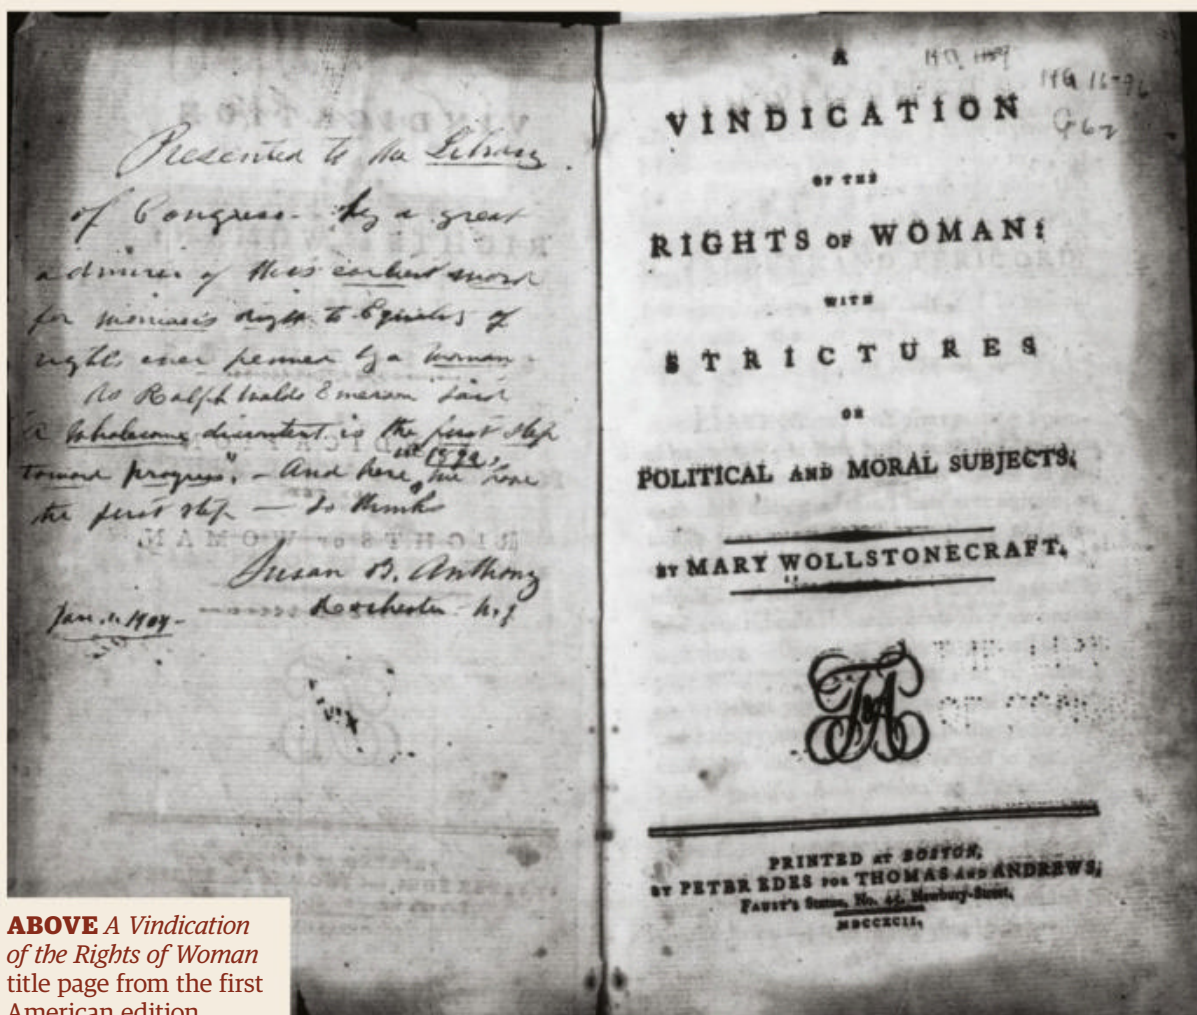 Presented to the Library
of Congress by a great
admirer of this earliest work
for woman's right to Equality of
rights ever penned by a woman.
As Ralph Waldo Emerson said
"A wholesome discontent is the first step
toward progress". - And here, in 1792, we have
the first step - so thinks
Susan B. Anthony
Rochester N.Y
Jan. 1. 1904-
A
VINDICATION
OF THE
RIGHTS OF WOMAN:
WITH
STRICTURES
ON
POLITICAL AND MORAL SUBJECTS.
BY MARY WOLLSTONECRAFT.
PRINTED AT BOSTON,
BY PETER EDES FOR THOMAS AND ANDREWS,
FAUST'S Statue, No. 45, Newbury-Street,
MDCCXCII.
ABOVE A Vindication
of the Rights of Woman
title page from the first
American edition